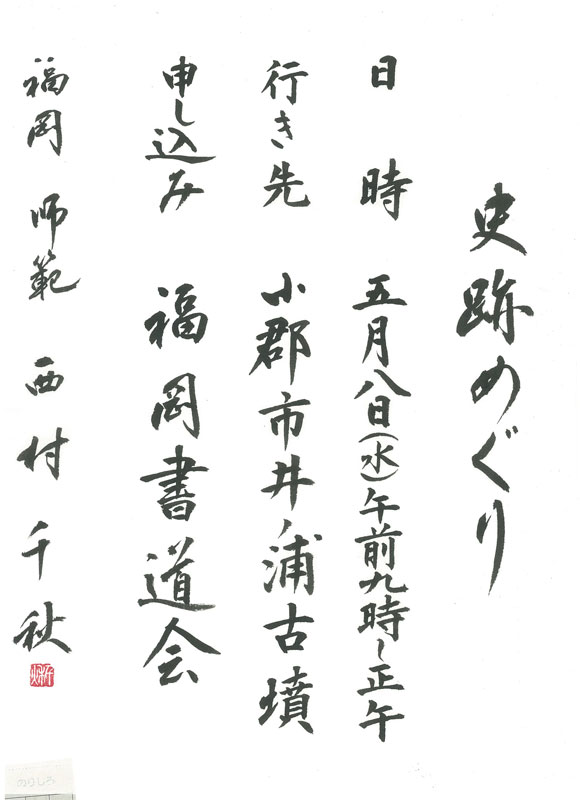 史跡めぐり
日時 五月八日(水)午前九時〜正午
行き先 小郡市井ノ浦古墳
申し込み 福岡書道会
福岡 師範 西村千秋
のりしろ